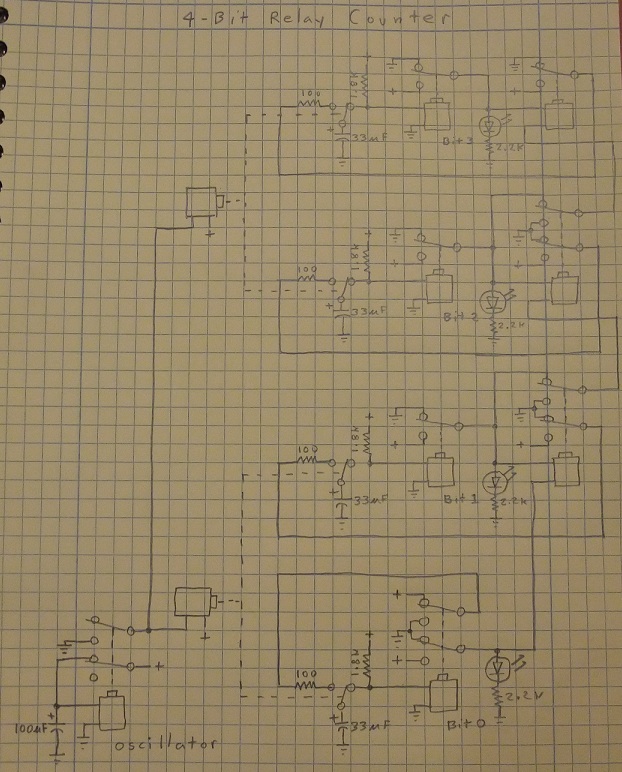 4-Bit Relay Counter
100
1.8K
+
33µF
+
+
Bit 3
2.2K
+
100
1.8K
+
33µF
+
+
Bit 2
2.2K
+
100
1.8K
+
33µF
+
+
Bit 1
2.2K
+
+
100
1.8K
+
33µF
+
+
+
Bit 0
2.2K
+
100µF
+
oscillator